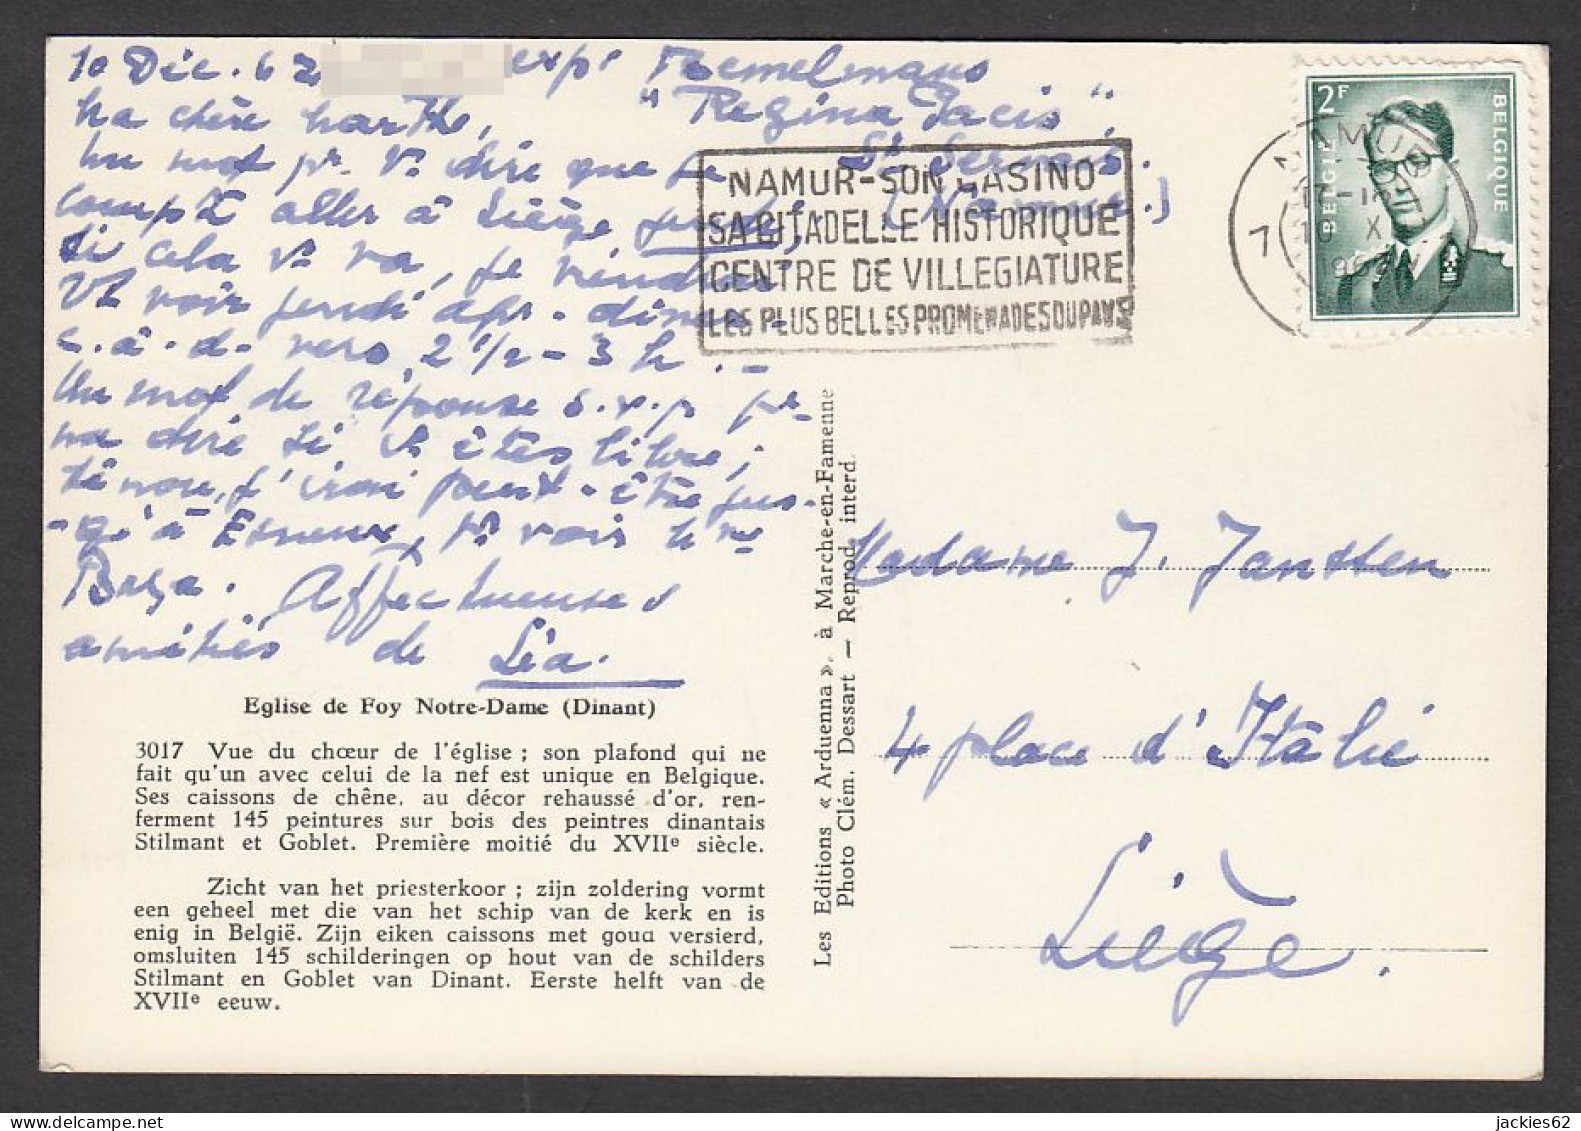 10 Déc. 62 exp.
"Regina Pacis",
St Servais.
(Namur.)
Ma chère Marthe,
Un mot pr. Vs dire que je
compte aller à Liège jeudi;
si cela Vs va, je viendrai
Vs voir jeudi apr.-dinez-
c.-à-d. vers 2 1/2 - 3 h. -
Un mot de réponse s.v.p pr
me dire si Vs êtes libre;
si non, j'irai peut-être jus-
-qu'à Esneux, pr voir Mme
Affectueuses
amitiés de Léa.
NAMUR-SON CASINO
SA CITADELLE HISTORIQUE
CENTRE DE VILLEGIATURE
LES PLUS BELLES PROMENADES DU PAYS
NAMUR
2F
BELGIE BELGIQUE
Madame J. Janssen
4 place d'Italie
Liège.
Eglise de Foy Notre-Dame (Dinant)
3017 Vue du chœur de l'église ; son plafond qui ne
fait qu'un avec celui de la nef est unique en Belgique.
Ses caissons de chêne, au décor rehaussé d'or, ren-
ferment 145 peintures sur bois des peintres dinantais
Stilmant et Goblet. Première moitié du XVIIe siècle.
Zicht van het priesterkoor ; zijn zoldering vormt
een geheel met die van het schip van de kerk en is
enig in België. Zijn eiken caissons met goud versierd,
omsluiten 145 schilderingen op hout van de schilders
Stilmant en Goblet van Dinant. Eerste helft van de
XVIIe eeuw.
Les Editions « Arduenna », à Marche-en-Famenne
Photo Clém. Dessart — Reprod. interd.
jackies62